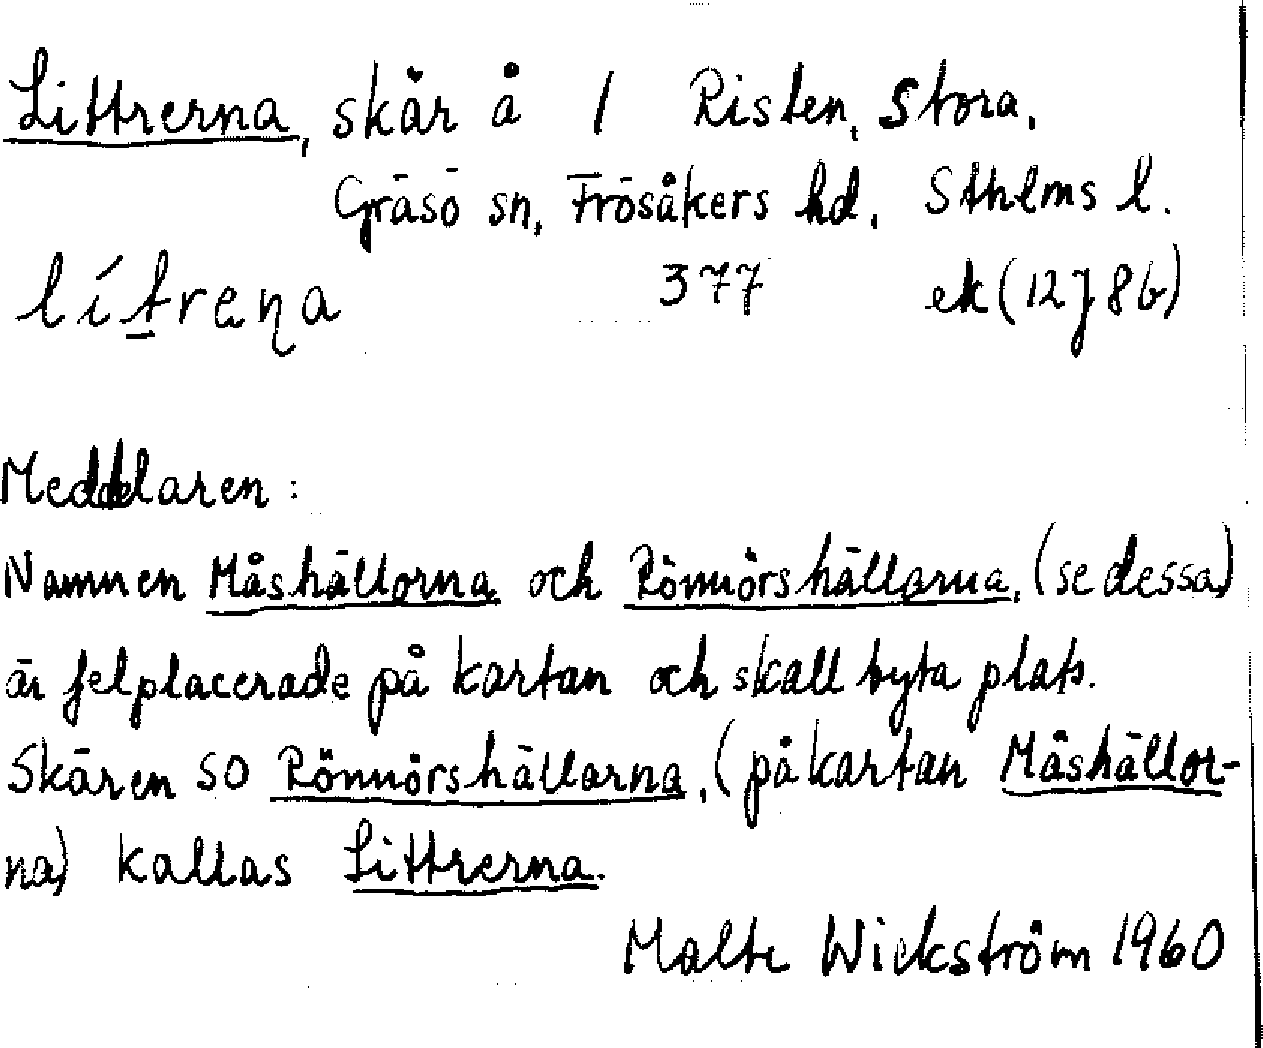 Littrerna, skär å / Risten, Stora.
Gräsö sn, Frösåkers hd, Sthlms l.
lítreṇa 377 ek (12J 8b)
Meddelaren:
Namnen Måshällorna och Rönnörshällarna, (se dessa)
är felplacerade på kartan och skall byta plats.
Skären SO Rönnörshällarna, (på kartan Måshällor-
na) kallas Littrerna.
Malte Wickström 1960